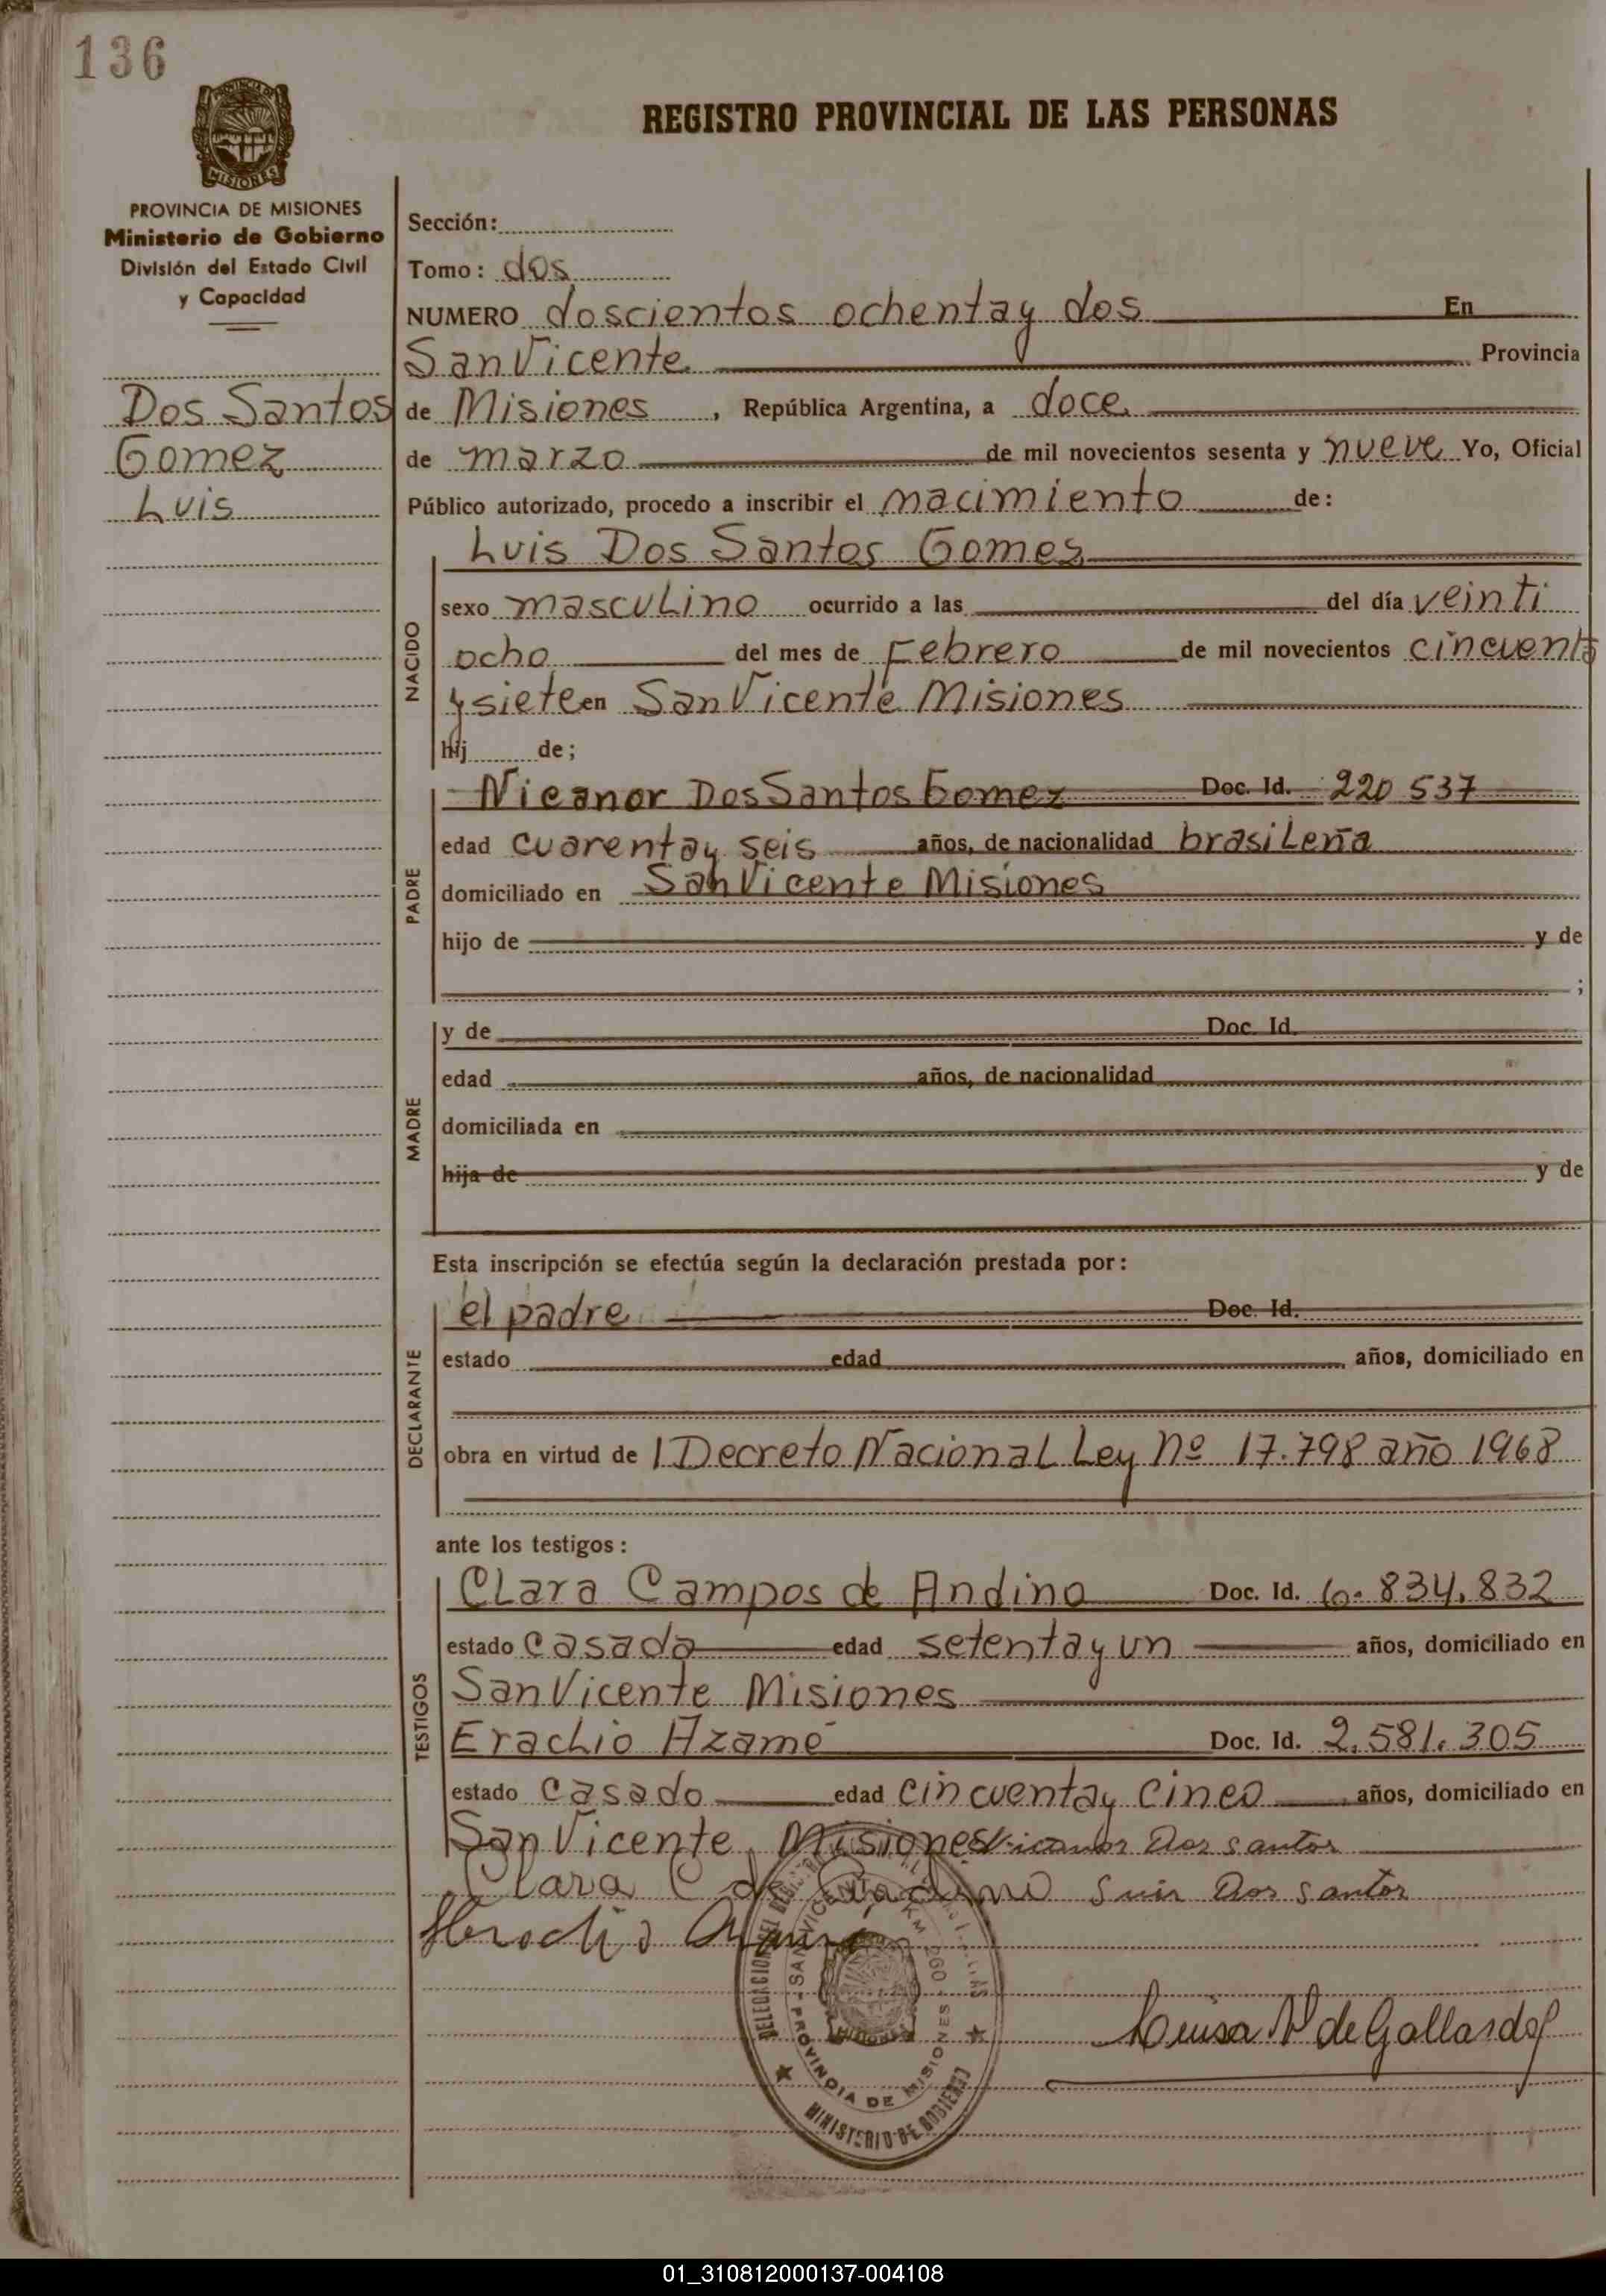 136
REGISTRO PROVINCIAL DE LAS PERSONAS
PROVINCIA DE MISIONES
Ministerio de Gobierno
División del Estado Civil
y Capacidad
Dos Santos
Gomez
Luis
Sección:
Tomo: dos
NUMERO doscientos ochenta y dos En
San Vicente Provincia
de Misiones, República Argentina, a doce
de marzo de mil novecientos sesenta y nueve Yo, Oficial
Público autorizado, procedo a inscribir el nacimiento de:
NACIDO
Luis Dos Santos Gomes
sexo masculino ocurrido a las del día veinti
ocho del mes de Febrero de mil novecientos cincuenta
y siete en San Vicente Misiones
hij de;
PADRE
Nicanor Dos Santos Gomez Doc. Id. 220 537
edad cuarenta y seis años, de nacionalidad brasileña
domiciliado en San Vicente Misiones
hijo de y de
;
MADRE
y de Doc. Id.
edad años, de nacionalidad
domiciliada en
hija de y de
Esta inscripción se efectúa según la declaración prestada por:
DECLARANTE
el padre Doc. Id.
estado edad años, domiciliado en
obra en virtud de l Decreto Nacional Ley Nº 17.798 año 1968
ante los testigos:
TESTIGOS
Clara Campos de Andino Doc. Id. 6.834.832
estado casada edad setenta y un años, domiciliado en
San Vicente Misiones
Eraclio Azamé Doc. Id. 2.581.305
estado casado edad cincuenta y cinco años, domiciliado en
San Vicente Misiones Nicanor Dos santos
Clara C de Andino Luis Dos santos
Luisa N de Gallardo
SAN VICENTE KM
PROVINCIA DE MISIONES
MINISTERIO DE GOBIERNO
01_310812000137-004108